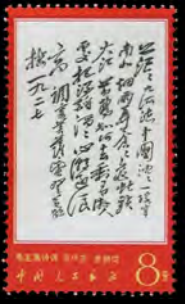 茫茫九派流中国沉沉一线穿
南北烟雨莽苍苍龟蛇锁
大江黄鹤知何去剩有游人
处把酒酹滔滔心潮逐浪
高 调寄菩萨蛮登黄鹤
楼一九二七
毛主席诗词 菩萨蛮 黄鹤楼
中国人民邮政 8分